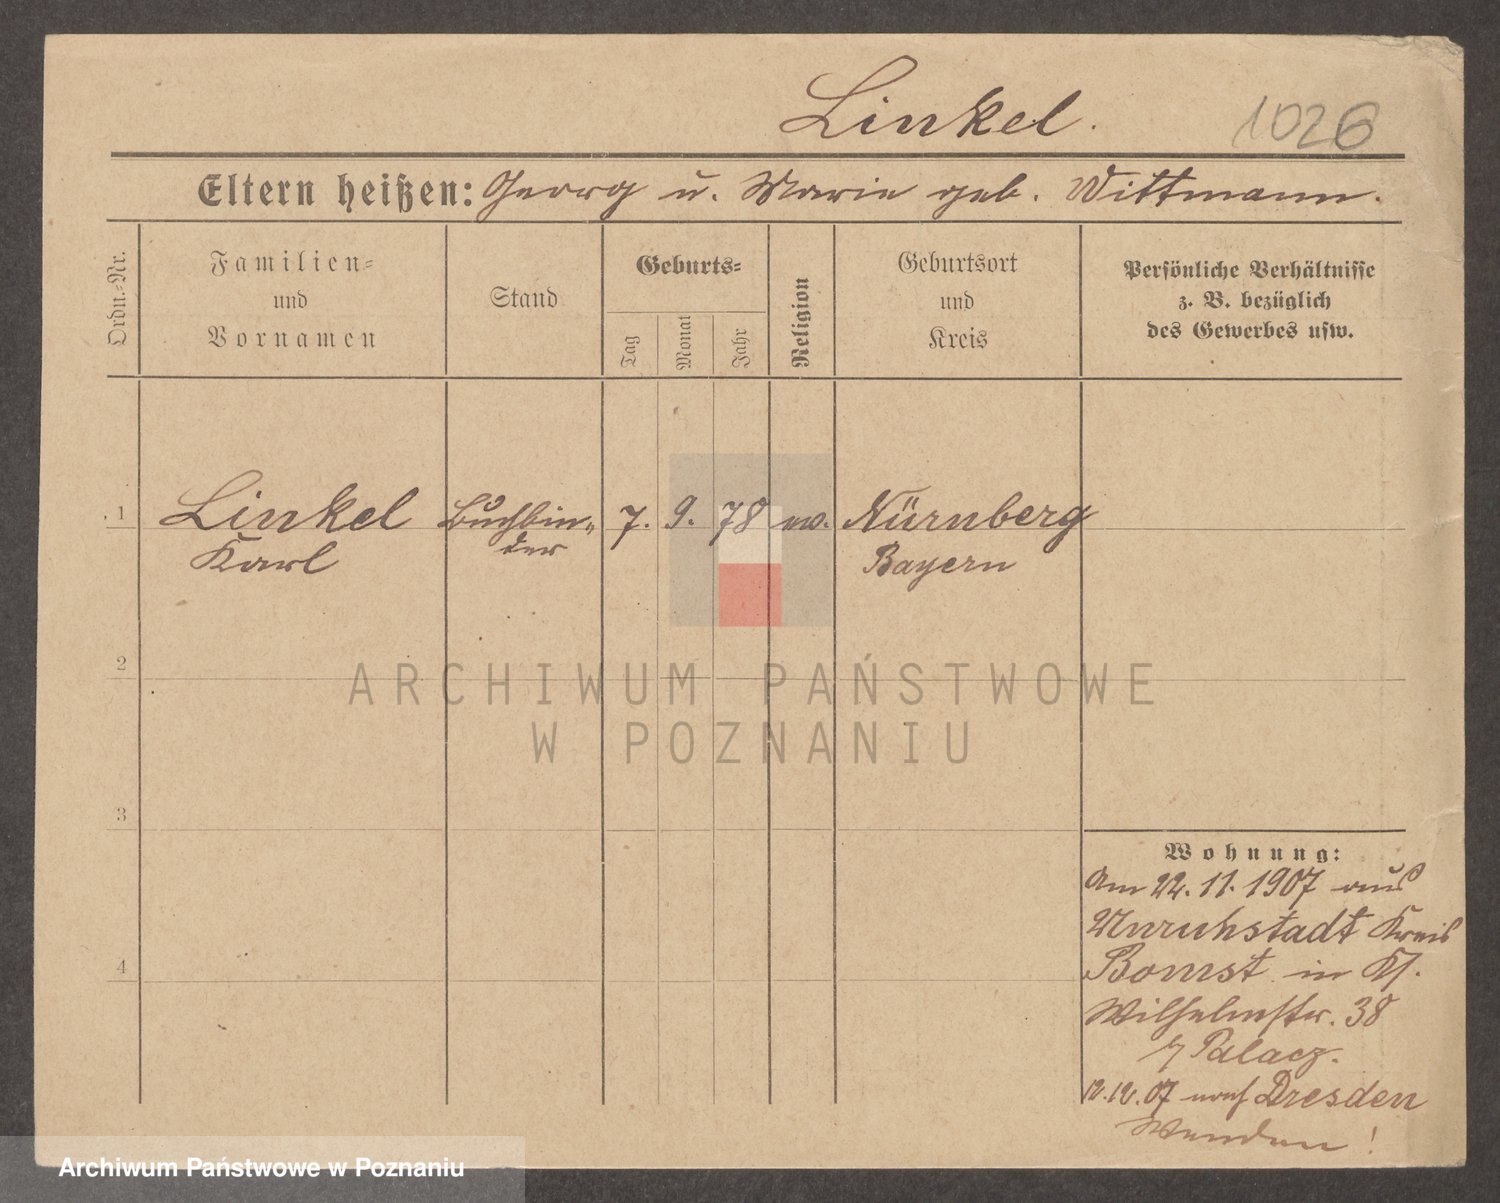 Linkel.
1026
Eltern heißen: Georg u. Marie geb. Wittmann.
Ordn.-Nr.
Familien-
und
Vornamen
Stand
Geburts-
Tag
Monat
Jahr
Religion
Geburtsort
und
Kreis
Persönliche Verhältnisse
z. B. bezüglich
des Gewerbes usw.
1
Linkel
Karl
Buchbin-
der
7. 9. 78
ev.
Nürnberg
Bayern
2
3
4
Wohnung:
Am 22. 11. 1907 aus
Unruhstadt Kreis
Bomst in
Wilhelmstr. 38
Palacz.
12.12.07 nach Dresden
Wenden!
ARCHIWUM PAŃSTWOWE
W POZNANIU
Archiwum Państwowe w Poznaniu